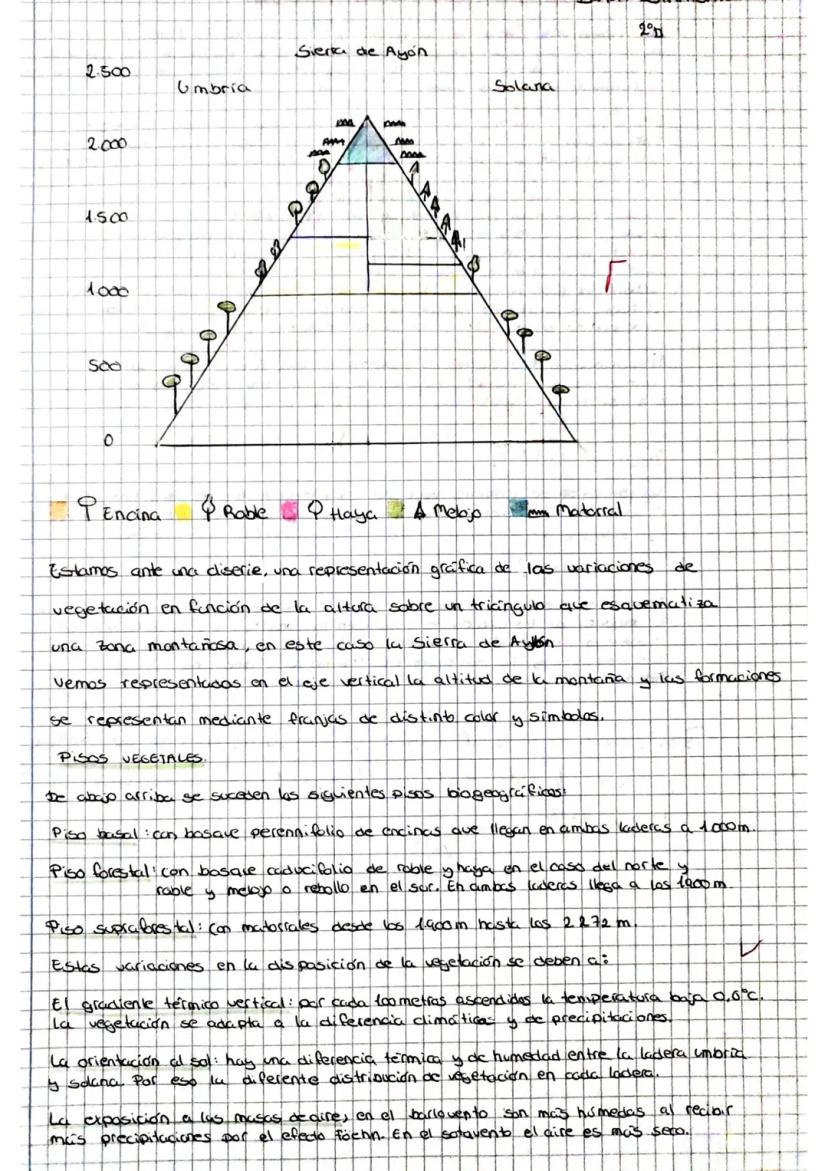 2ºD
Sierra de Ayón
2.500
Umbría
Solana
2.000
1.500
1000
500
0
Encina Roble Haya Melojo Matorral
Estamos ante una cliserie, una representación gráfica de las variaciones de
vegetación en función de la altura sobre un triángulo que esquematiza
una zona montañosa, en este caso la Sierra de Ayllón
Vemos representados en el eje vertical la altitud de la montaña y las formaciones
se representan mediante franjas de distinto color y símbolos.
PISOS VEGETALES.
De abajo arriba se suceden los siguientes pisos biogeográficos:
Piso basal: con bosque perennifolio de encinas que llegan en ambas laderas a 1.000m.
Piso forestal: con bosque caducifolio de roble y haya en el caso del norte y
roble y melojo o rebollo en el sur. En ambas laderas llega a los 1900m.
Piso supraforestal: con matorrales desde los 1.900m hasta los 2272 m.
Estas variaciones en la disposición de la vegetación se deben a:
El gradiente térmico vertical: por cada 100 metros ascendidos la temperatura baja 0,6ºC.
La vegetación se adapta a la diferencia climática y de precipitaciones.
La orientación al sol: hay una diferencia térmica y de humedad entre la ladera umbría
y solana. Por eso la diferente distribución de vegetación en cada ladera.
La exposición a las masas de aire, en el barlovento son más húmedas al recibir
más precipitaciones por el efecto Föehn. En el sotavento el aire es más seco.